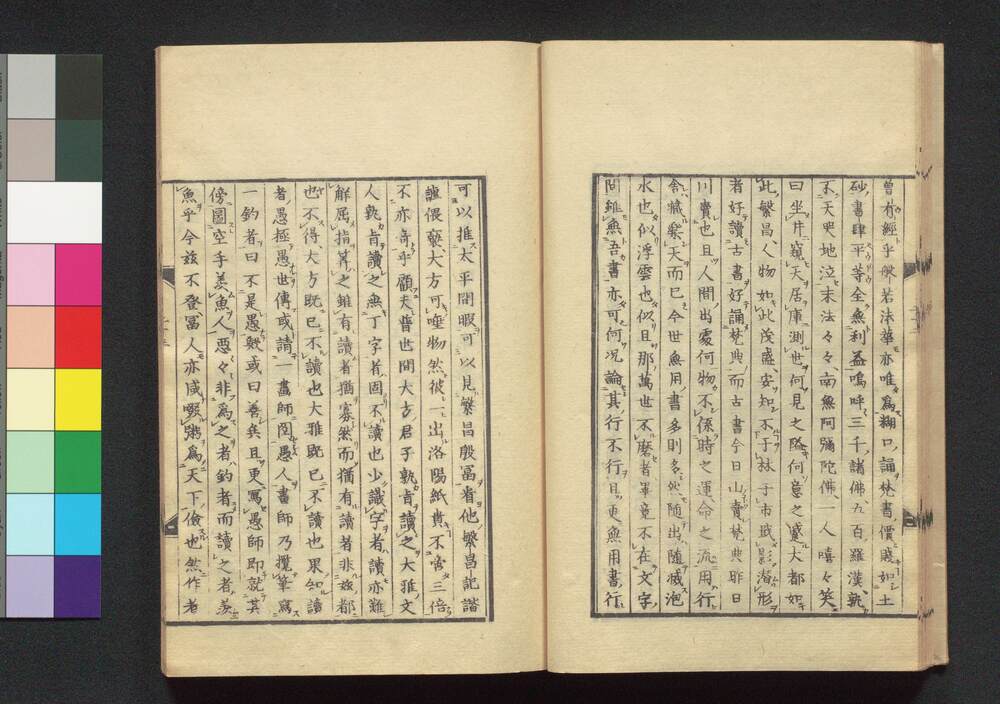 曾有經乎般若法華亦唯爲糊口誦梵書價賤如土
砂書肆平等全無利益嗚呼三千諸佛五百羅漢孰
不天哭地泣末法々々南無阿彌陀佛一人嘻々笑
曰坐井窺天居庫測世何見之隘何意之蹙大都如
此繁昌人物如此茂盛安知不于林于市戢影潜形
者好讀古書好誦梵典而古書今日山賣梵典昨日
川賣也且人間出處何物不係時之運命之流用行
舍藏樂天而已今世無用書多則多然随出随滅泡
水也似浮雲也似且那萬世不磨者畢竟不在文字
間雖無吾書亦可何况論其行不行且更無用書行
可以推太平間暇可以見繁昌殷冨看他繁昌記諧
謔偎褻大方可唾物然彼一出洛陽紙貴不啻三倍
不亦奇乎顧夫普世間大方君子孰肯讀之大雅文
人孰肯讀之無丁字者固不讀也少識字者讀亦難
解屈指算之雖有讀者猶寡然而猶有讀者非玆都
也不得大方既已不讀也大雅既已不讀也果知讀
者愚極愚也傳或請一畫師圖愚人畫師乃攬筆寫
一釣者曰不是愚或曰善矣且更寫愚師即就其
傍圖空手羨魚人惡々非爲之者釣者而讀之者羨
魚乎今玆不登冨人亦咸啜粥爲天下儉也然作者